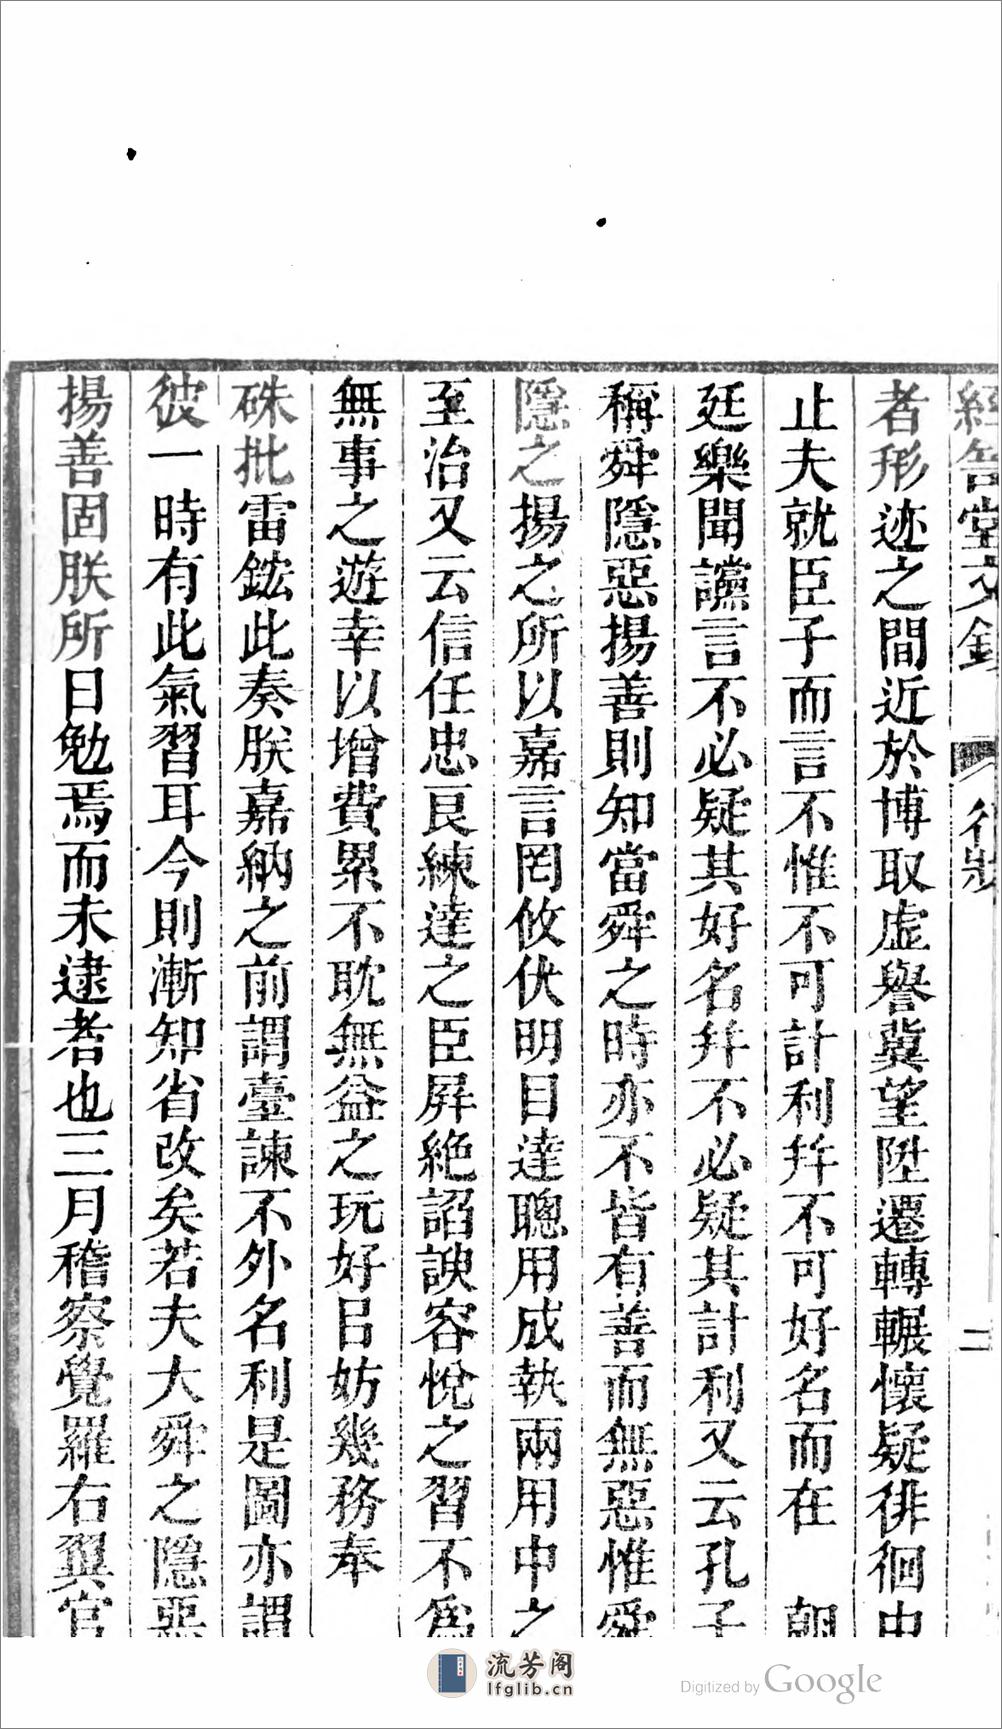 經笥堂文鈔 行狀 二
者形迹之間近於博取虛譽冀望陞遷轉輾懷疑徘徊中
止夫就臣子而言不惟不可計利幷不可好名而在 朝
廷樂聞讜言不必疑其好名幷不必疑其計利又云孔子
稱舜隱惡揚善則知當舜之時亦不皆有善而無惡惟舜
隱之揚之所以嘉言罔攸伏明目達聰用成執兩用中之
至治又云信任忠良練達之臣屛絶謟諛容悅之習不爲
無事之遊幸以增費累不耽無益之玩好㠯妨幾務奉
硃批雷鋐此奏朕嘉納之前謂臺諫不外名利是圖亦謂
彼一時有此氣習耳今則漸知省改矣若夫大舜之隱惡
揚善固朕所日勉焉而未逮者也三月稽察覺羅右翼官
流芳阁
lfglib.cn
Digitized by Google